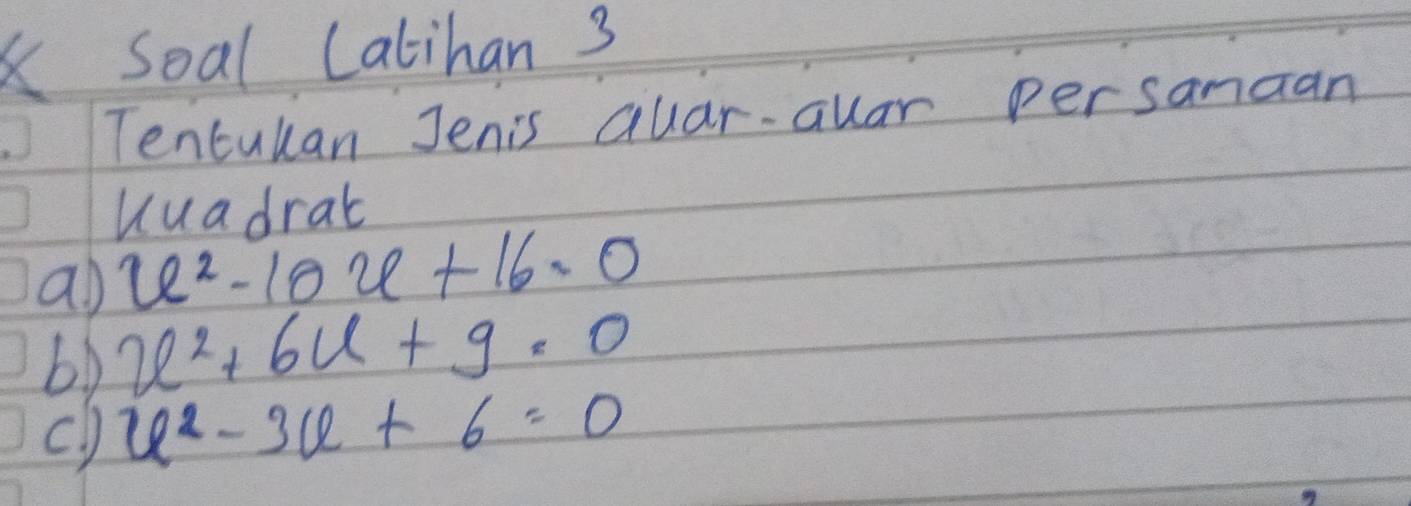 Soal Latihan 3
Tentukan Jenis akar-akar Persamaan
Kuadrat
a) x² - 10x + 16 = 0
b) x² + 6x + 9 = 0
c) x² - 3x + 6 = 0